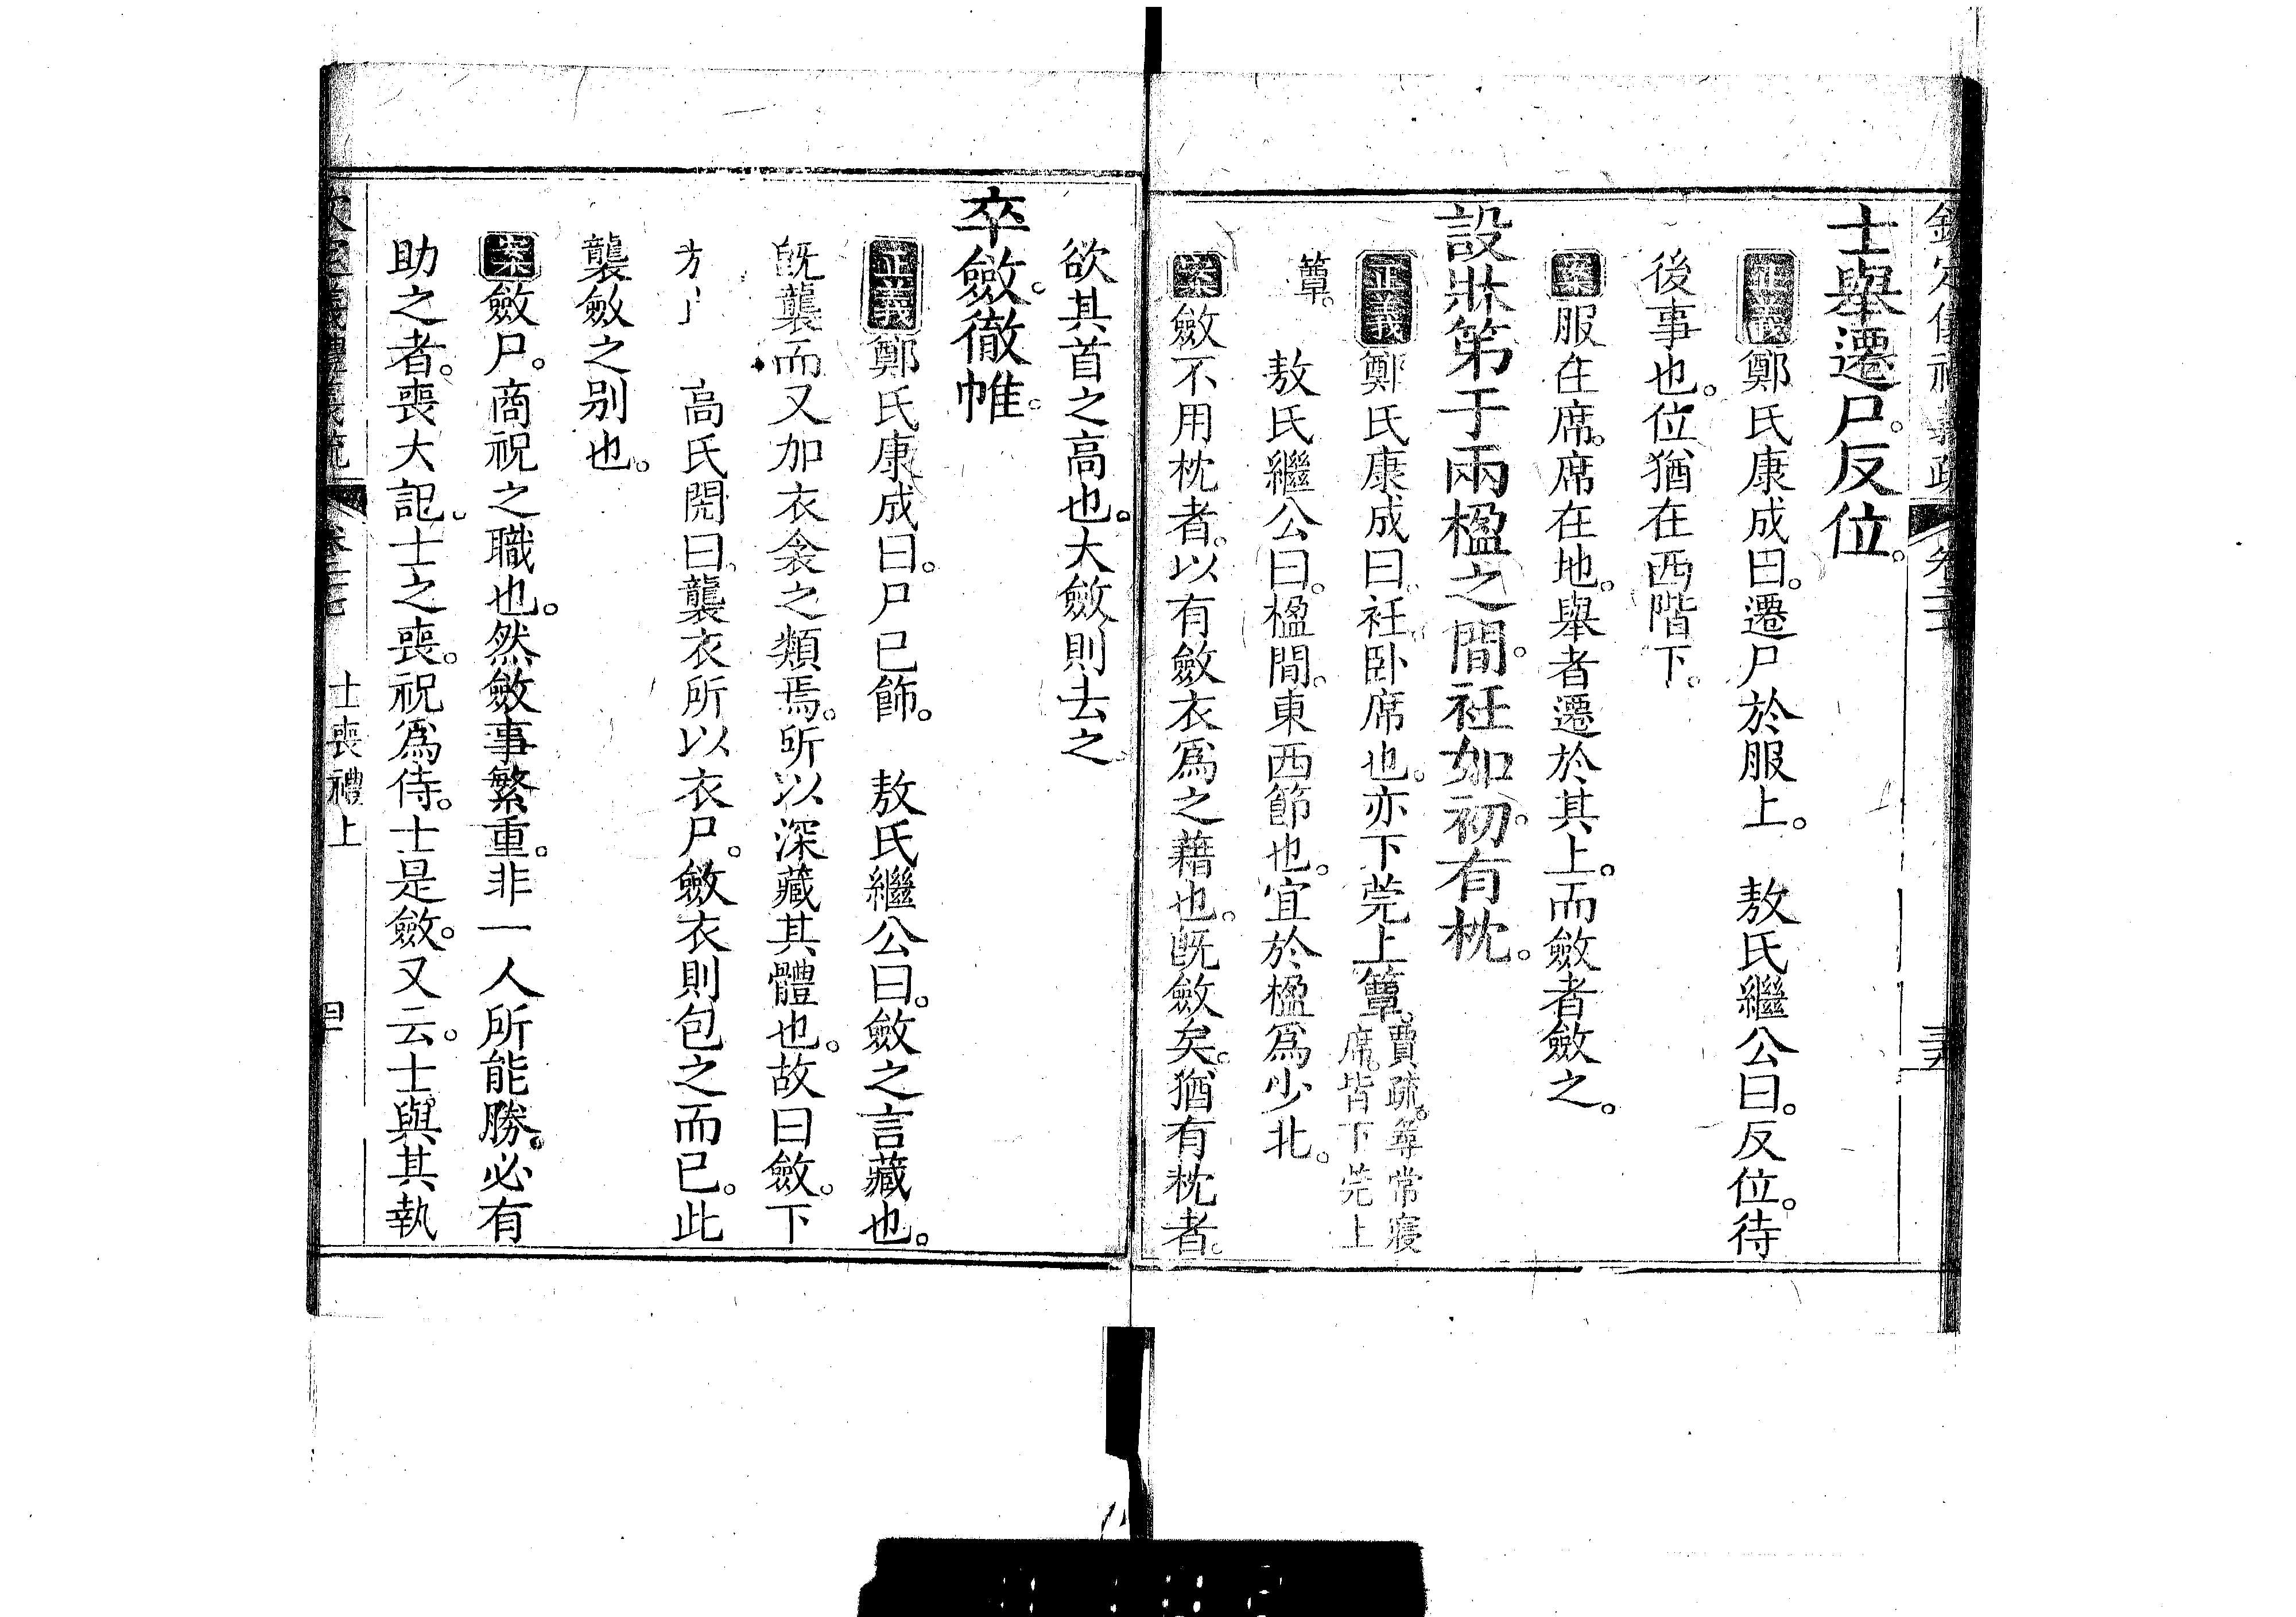 士舉遷尸反位。
正義鄭氏康成曰。遷尸於服上。 敖氏繼公曰。反位。待
後事也。位猶在西階下。
案服在席。席在地。舉者遷於其上。而斂者斂之。
設牀第于兩楹之間。衽如初。有枕。
正義鄭氏康成曰。衽卧席也。亦下莞上簟。賈疏。尋常寢
席。皆下莞上
簟。 敖氏繼公曰。楹間。東西節也。宜於楹爲少北。
案斂不用枕者。以有斂衣爲之藉也。旣斂矣。猶有枕者。
欲其首之高也。大斂則去之
卒斂。徹帷。
正義鄭氏康成曰。尸已飾。 敖氏繼公曰。斂之言藏也。
旣襲而又加衣衾之類焉。所以深藏其體也。故曰斂。下
高氏閌曰。襲衣所以衣尸。斂衣則包之而已。此
襲斂之別也。
案斂尸。商祝之職也。然斂事繁重。非一人所能勝。必有
助之者。喪大記。士之喪。祝爲侍。士是斂。又云。士與其執
士喪禮上